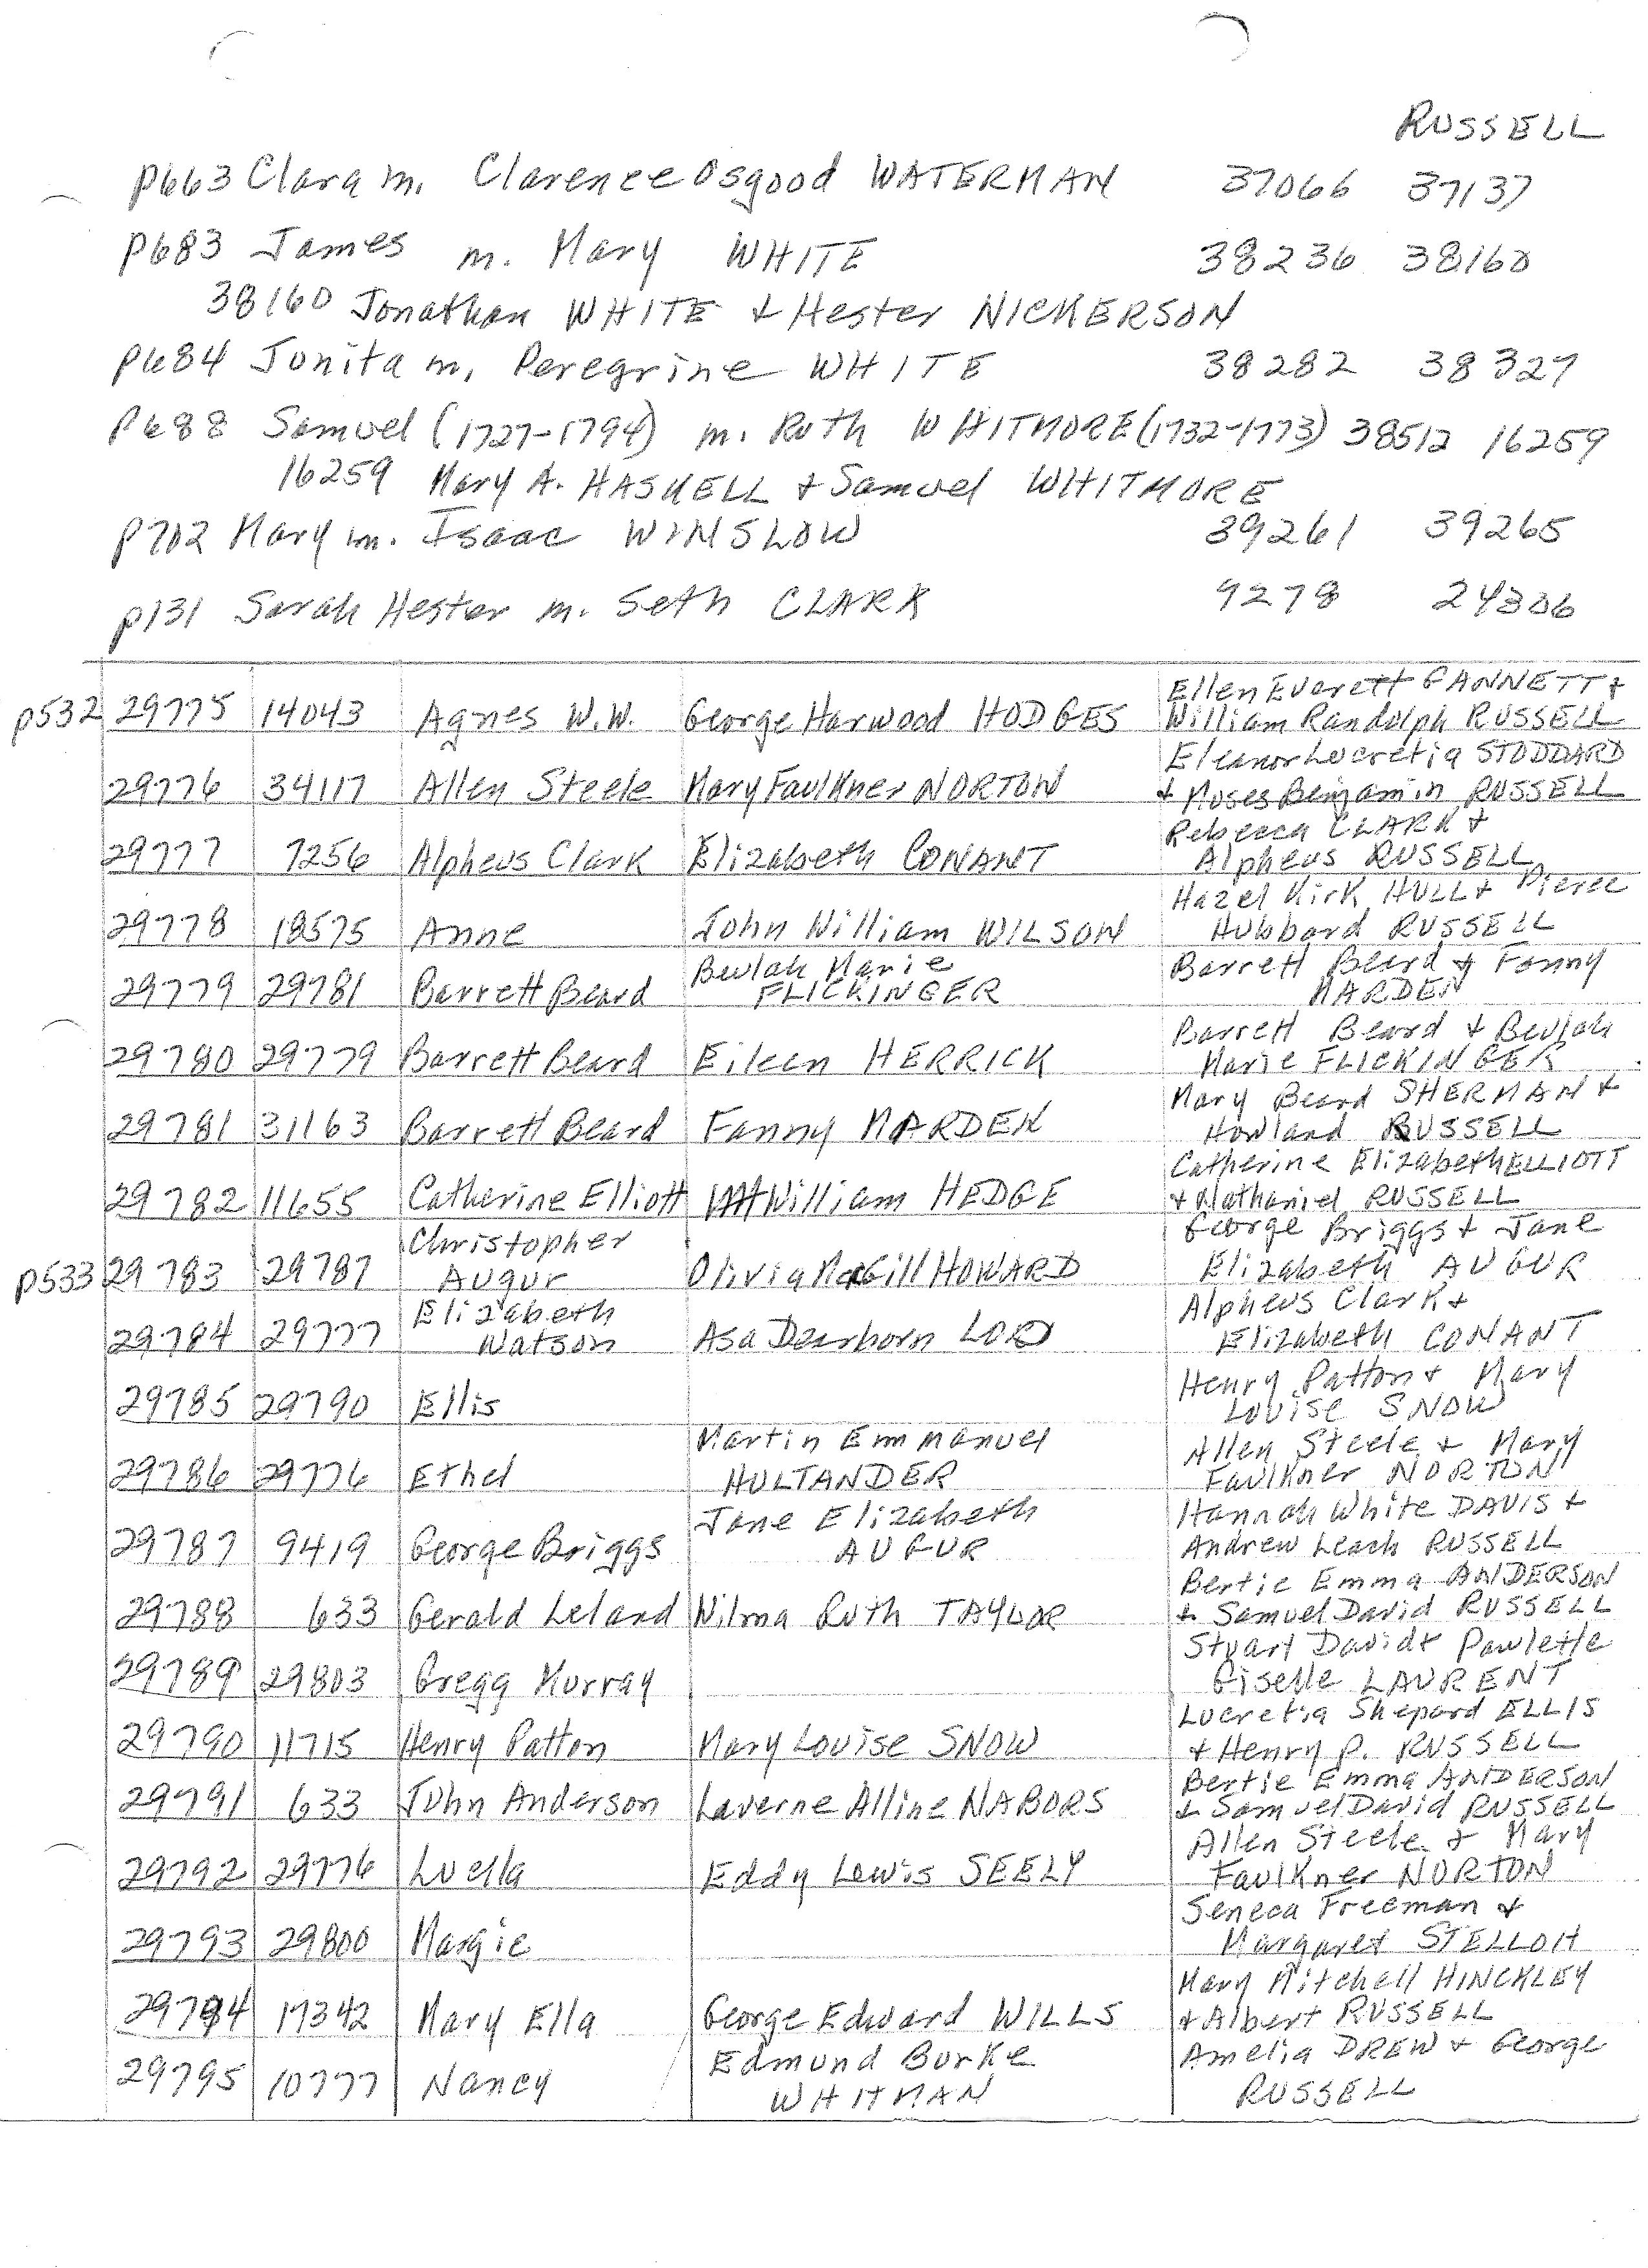 RUSSELL
p663 Clara m. Clarence Osgood WATERMAN 37066 37137
p683 James m. Mary WHITE 38236 38160
38160 Jonathan WHITE + Hester NICKERSON
p684 Jonita m. Peregrine WHITE 38282 38327
p688 Samuel (1727-1794) m. Ruth WHITMORE (1732-1773) 38512 16259
16259 Mary A. HASKELL + Samuel WHITMORE
p702 Mary m. Isaac WINSLOW 39261 39265
p131 Sarah Hester m. Seth CLARK 9278 24306
Ellen Everett GANNETT +
p532 29775 14043 Agnes W.W. George Harwood HODGES William Randolph RUSSELL
Eleanor Lucretia STODDARD
29776 34117 Allen Steele Mary Faulkner NORTON + Moses Benjamin RUSSELL
Rebecca CLARK +
29777 7256 Alpheus Clark Elizabeth CONANT Alpheus RUSSELL
Hazel Kirk HULL + Pierce
29778 18575 Anne John William WILSON Hubbard RUSSELL
Beulah Marie Barrett Beard + Fanny
29779 29781 Barrett Beard FLICKINGER MARDEN
Barrett Beard + Beulah
29780 29779 Barrett Beard Eileen HERRICK Marie FLICKINGER
Mary Beard SHERMAN +
29781 31163 Barrett Beard Fanny MARDEN Howland RUSSELL
Catherine Elizabeth ELLIOTT
29782 11655 Catherine Elliott William HEDGE + Nathaniel RUSSELL
Christopher George Briggs + Jane
p533 29783 29787 Augur Olivia McGill HOWARD Elizabeth AUGUR
Elizabeth Alpheus Clark +
29784 29777 Watson Asa Dearborn LORD Elizabeth CONANT
Henry Patton + Mary
29785 29790 Ellis Louise SNOW
Martin Emmanuel Allen Steele + Mary
29786 29776 Ethel HULTANDER Faulkner NORTON
Jane Elizabeth Hannah White DAVIS +
29787 9419 George Briggs AUGUR Andrew Leach RUSSELL
Bertie Emma ANDERSON
29788 633 Gerald Leland Wilma Ruth TAYLOR + Samuel David RUSSELL
Stuart David + Paulette
29789 29803 Gregg Murray Giselle LAURENT
Lucretia Shepard ELLIS
29790 11715 Henry Patton Mary Louise SNOW + Henry P. RUSSELL
Bertie Emma ANDERSON
29791 633 John Anderson Laverne Alline NABORS + Samuel David RUSSELL
Allen Steele + Mary
29792 29776 Luella Eddy Lewis SEELY Faulkner NORTON
Seneca Freeman +
29793 29800 Margie Margaret STELLOH
Mary Mitchell HINCKLEY
29794 17342 Mary Ella George Edward WILLS + Albert RUSSELL
Edmund Burke Amelia DREW + George
29795 10777 Nancy WHITMAN RUSSELL